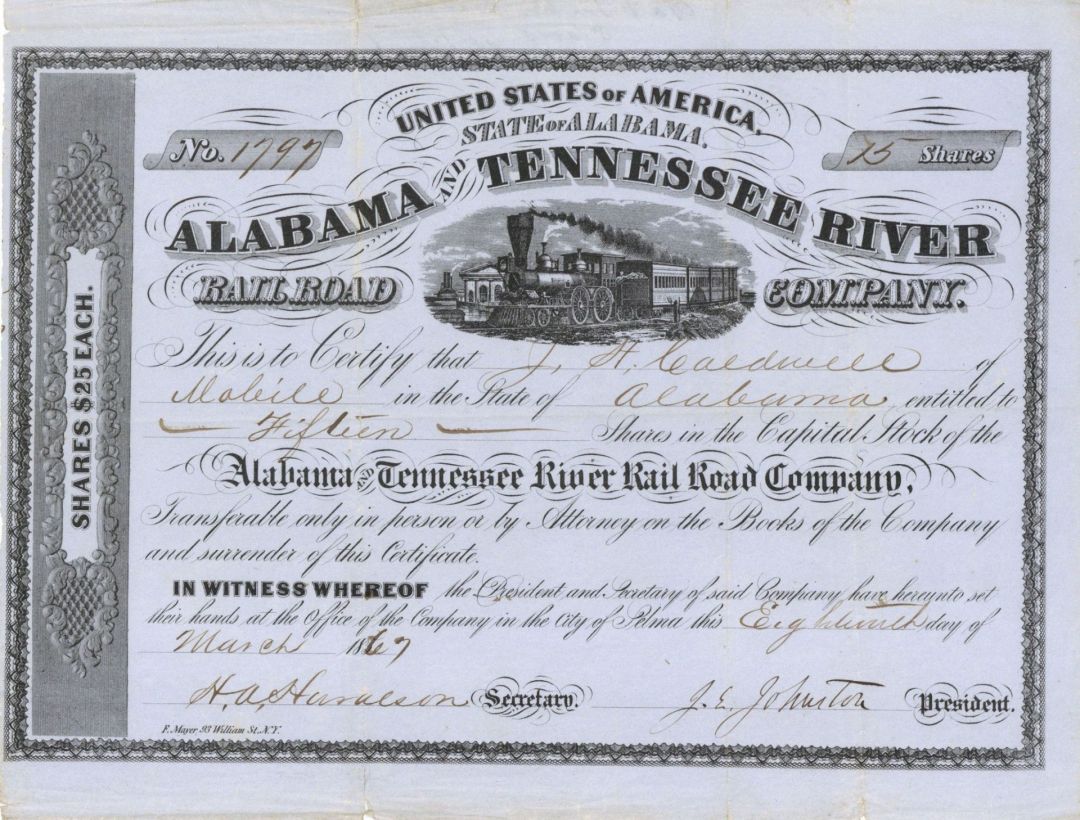 UNITED STATES OF AMERICA.
STATE OF ALABAMA.
No. 1797
15 Shares
ALABAMA AND TENNESSEE RIVER
RAIL ROAD COMPANY.
SHARES $25 EACH.
This is to Certify that J. H. Caldwell of
Mobile in the State of Alabama entitled to
Fifteen Shares in the Capital Stock of the
Alabama and Tennessee River Rail Road Company,
Transferable only in person or by Attorney on the Books of the Company
and surrender of this Certificate.
IN WITNESS WHEREOF the President and Secretary of said Company have hereunto set
their hands at the Office of the Company in the City of Selma this Eighteenth day of
March 1867
Secretary. J. E. Johnston President.
F. Mayer 93 William St. N.Y.